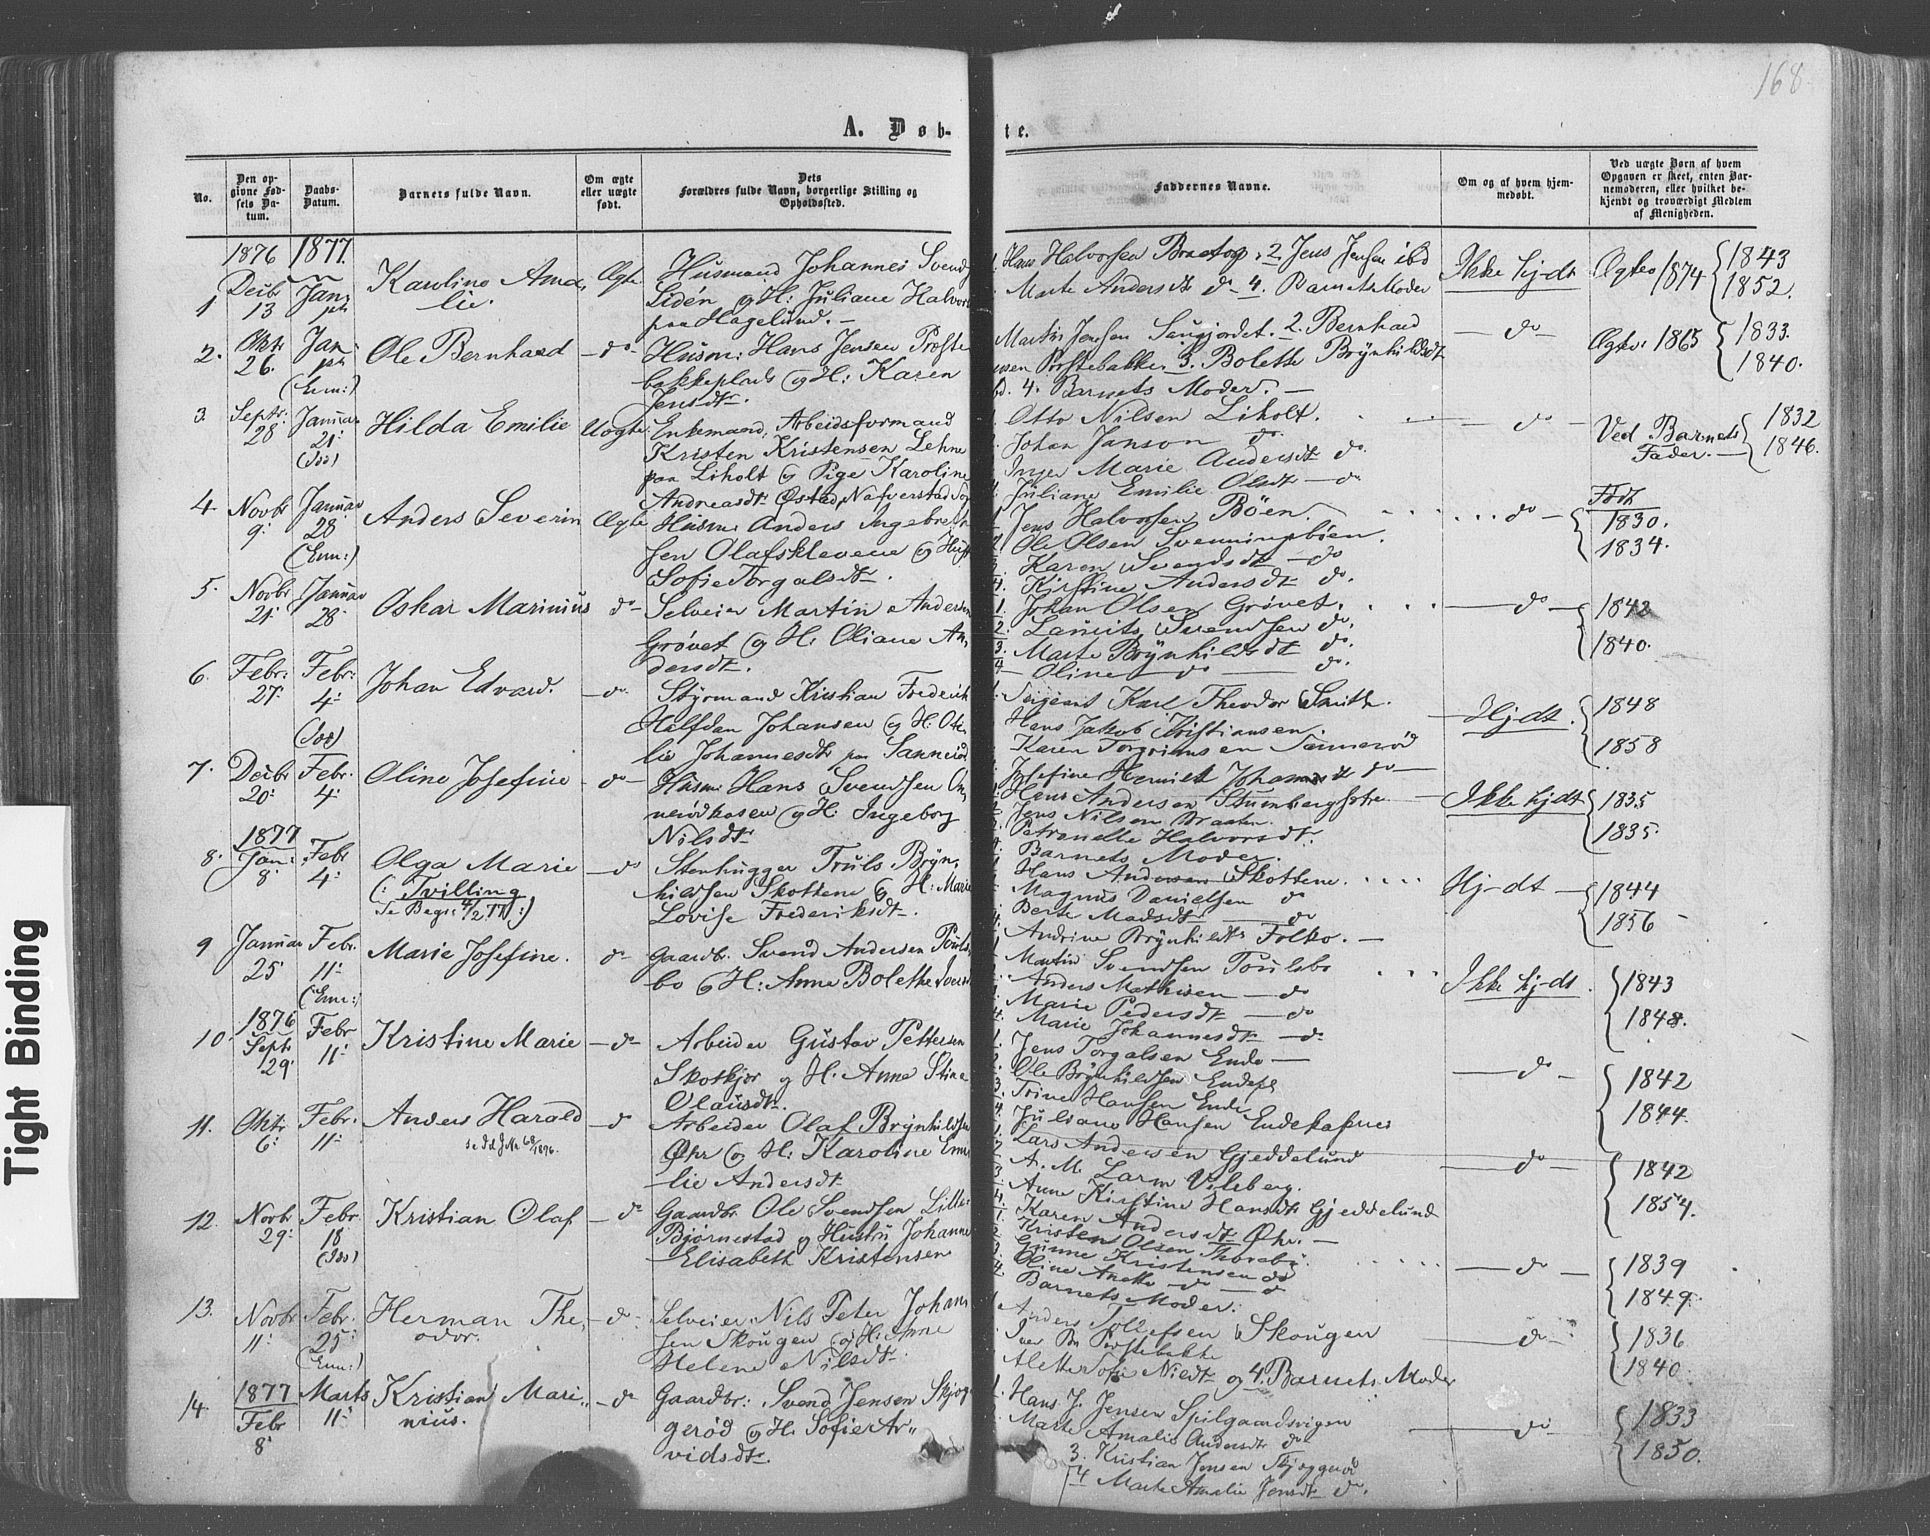 168
A. Døb-te.
No.
Den op-
givne Fød-
sels Da-
tum.
Daabs-
Datum.
Barnets fulde Navn.
Om ægte
eller uægte
født.
Dets
Forældres fulde Navn, borgerlige Stilling og
Opholdssted.
Faddernes Navne.
Om og af hvem hjem-
medøbt.
Ved uægte Børn af hvem
Opgaven er skeet, enten Bar-
nemoderen, eller hvilket be-
kjendt og troværdigt Medlem
af Menigheden.
1876 1877
1 Decbr 13 Jan: Karoline Ama,
lie. Ægte
Husmand Johannes Svend
Lidén og H: Juliane Halvor
paa Hagelund. —
Hans Halvorsen 2 Jens Jensen ibd
Marte Andersdt do 4. Barnets Moder
Ikke hj-dt Ægtev 1874 1843
1852.
2. Oktr 26. Jan (Enm:) Ole Bernhard — do —
Husm: Hans Jensen Præste
bakkeplads og H: Karen
Jensdtr.
Martin Jensen Saugjordet. 2. Bernhard
Præstebakke 3. Bolette Brynhildsdt
4. Barnets Moder. —
— do — Ægtev: 1865 1833.
1840.
3. Septr: 28 Januar 21: (Iss) Hilda Emilie Uægte
Enkemand, Arbeidsformand
Kristen Kristensen Lehne
paa Liholt og Pige Karoline
Andreasdt: Østad, Nafverstad Sog
Otto Nilsen Liholt.
Johan Janson do.
Inger Marie Andersdt do.
Juliane Emilie Olsdt — do
— do — Ved Barnets
Fader. — 1832
1846.
4. Novbr 9: Januar 28 (Enm:) Anders Severin Ægte
Husm: Anders Ingebret
sen Olafsklevene og Hust
Sofie Torgalsdt.
Jens Halvorsen Bøen.
Ole Olsen Svenningsbøen.
Karen Svendsdt — do
4. Kirstine Andersdt do.
do — Født
1830.
1834.
5. Novbr 21: Januar 28: Oskar Marinius do —
Selveier Martin Andersen
Grøvet og H: Oliane An
dersdt.
1. Johan Olsen Grøvet.
2. Lauritz Svendsen do.
3. Marte Brynhildsdt do.
4 — Oline — do — do.
— do — 1842
1840.
6. Febr: 27: Febr: 4: (Iss) Johan Edvard. — do
Styrmand Kristian Frederik
Halfdan Johansen og H: Ote
lie Johannesdtr paa Sannerød
Sergeant Karl Theodor Smith.
Hans Jakob Kristiansen.
Karen Torgrimsen Sannerød
Josefine Henriet Johannsdt do —
— Hj-dt. 1848
1858
7. Decbr 20: Febr. 4: Oline Josefine — do —
Husm: Hans Svendsen
nerødkasen og H: Ingeborg
Nilsdt:
Hans Andersen
Jens Nilsen Braaten
Petronelle Halvorsdt:
Barnets Moder.
Ikke hj-dt 1835
1835.
8. 1877 Jan: 8: Febr 4: Olga Marie
(: Tvilling
Se Begr: 4/2 77 :) — do
Stenhugger Truls Bryn,
hildsen Skottene og H: Marie
Lovise Frederiksdt.
Hans Andersen Skottene.
Magnus Danielsen do
Berte Madsdt — do
Andrine Brynhildts Folko. —
Hj-dt — 1844
1856
9 Januar 25 Febr. 11: (Enm:) Marie Josefine. do —
Gaardbr. Svend Andersen Poulse
bo og H: Anne Bolette
Martin Svendsen Poulsbo
Anders Mathisen — do
Marie Pedersdt — do
4. Marie Johannesdt — do
Ikke hj-dt 1843
1848.
10. 1876 Septr 29: Febr 11: Kristine Marie — do —
Arbeider Gustav Pettersen
Skotkjær og H. Anne Stina
Olausdt:
Jens Torgalsen Ende —
Ole Brynhildsen Endepl
3. Trine Hansen Ende
4. Juliane Hansen Endekasnes
— do — 1842
1844.
11. Oktr 6: Febr. 11: Anders Harald — do
Arbeider Olaf Brynhildsen
Øhr og H: Karoline Emi
lie Andersdt
Lars Andersen Gjeddelund
A. M. Larm Vileberg.
Anne Kirstine Hansdt: Gjeddelund
4. Karen Andersdt Øhr. —
— do — 1842
1854.
12. Novbr 29: Febr 18 (Iss) Kristian Olaf — do
Gaardbr: Ole Svendsen Lille
Bjørnestad og Hustru Johanne
Elisabeth Kristensen
Kristen Olsen Thorebø.
Gunne Kristensen do
Oline Anette — do — do
4. Barnets Moder.
— do — 1839
1849.
13. Novbr 11: Febr. 25: (Enm:) Herman The,
odor. — do —
Selveier Nils Peter Johan
sen Skougen og H: Anne
Helene Nilsdt.
Anders Tollefsen Skougen
Iver Præstebakke
Alette Sofie Nilsdt og 4. Barnets Moder
— do — 1836
1840.
14. 1877 Febr 8: Marts 11: Kristian Mari,
nius. — do
Gaardbr: Svend Jensen Skjøg
gerød og H: Sofie Ar,,
vidsdt.
1. Hans J. Jensen Spilgaardsvigen
Marte Amalie Andersdt do
3. Kristian Jensen Skjøggerød
4 Marte Amalie Jensdt do.
— do — 1833
1850.
Tight Binding